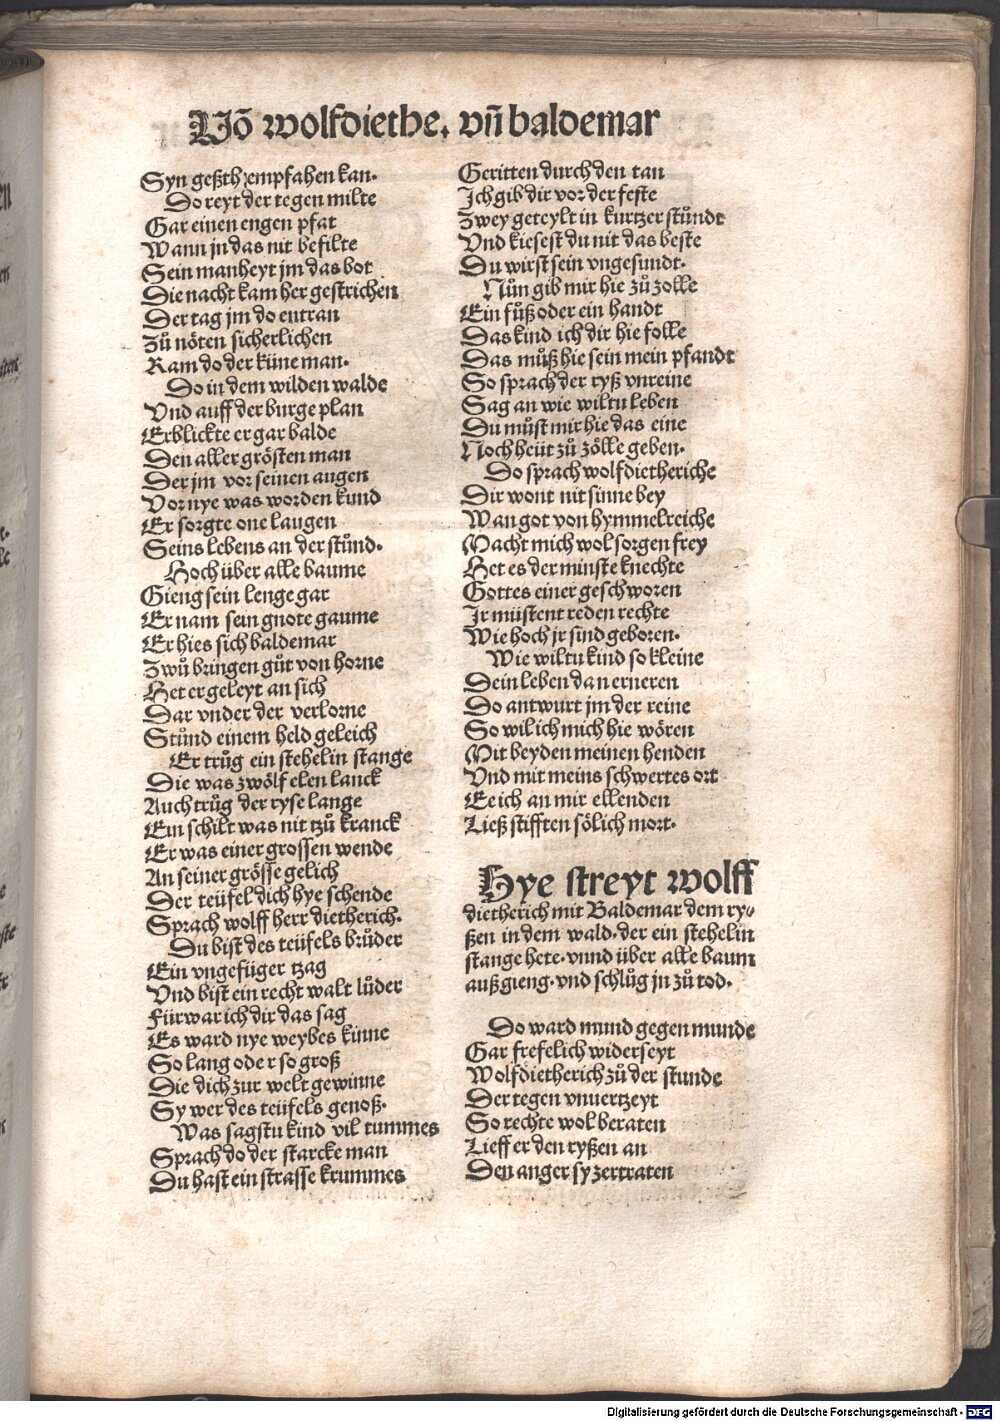 Võ wolfdiethe. vñ baldemar
Syn geßth empfahen kan.
Do reyt der tegen milte
Gar einen engen pfat
Wann jn das nit befilte
Sein manheyt jm das bot
Die nacht kam her gestrichen
Der tag jm do entran
Zů nöten sicherlichen
Kam do der küne man.
Do in dem wilden walde
Vnd auff der burge plan
Erblickte er gar balde
Den aller grösten man
Der jm vor seinen augen
Vor nye was worden kund
Er sorgte one laugen
Seins lebens an der stůnd.
Hoch über alle baume
Gieng sein lenge gar
Er nam sein gnote gaume
Er hies sich baldemar
Zwů bringen gůt von horne
Het er geleyt an sich
Dar vnder der verlorne
Stůnd einem held geleich
Er trůg ein stehelin stange
Die was zwölf elen lanck
Auch trůg der ryse lange
Ein schilt was nit tzů kranck
Er was einer grossen wende
An seiner grösse gelich
Der teüfel dich hye schende
Sprach wolff herr dietherich.
Du bist des teüfels brůder
Ein vngefüger tzag
Vnd bist ein recht walt lůder
Fürwar ich dir das sag
Es ward nye weybes künne
So lang oder so groß
Die dich zur welt gewinne
Sy wer des teüfels genoß.
Was sagstu kind vil tummes
Sprach do der starcke man
Du hast ein strasse krummes
Geritten durch den tan
Ich gib dir vor der feste
Zwey geteylt in kurtzer stůndt
Vnd kiesest du nit das beste
Du wirst sein vngesundt.
Nůn gib mir hie zů zolle
Ein fůß oder ein handt
Das kind ich dir hie folle
Das můß hie sein mein pfandt
So sprach der ryß vnreine
Sag an wie wiltu leben
Du můst mir hie das eine
Noch heüt zů zölle geben.
Do sprach wolfdietheriche
Dir wont nit sinne bey
Wan got von hymmelreiche
Macht mich wol sorgen frey
Het es der minste knechte
Gottes einer geschworen
Ir müstent reden rechte
Wie hoch jr sind geboren.
Wie wiltu kind so kleine
Dein leben dan erneren
Do antwurt jm der reine
So wil ich mich hie wören
Mit beyden meinen henden
Vnd mit meins schwertes ort
Ee ich an mir ellenden
Ließ stifften sölich mort.
Hye streyt wolff
dietherich mit Baldemar dem ry⸗
ßen in dem wald. der ein stehelin
stange hete. vnnd über alle baum
außgieng. vnd schlůg jn zů tod.
Do ward mund gegen munde
Gar frefelich widerseyt
Wolfdietherich zů der stunde
Der tegen vnuertzeyt
So rechte wol beraten
Lieff er den ryßen an
Den anger sy zertraten
Digitalisierung gefördert durch die Deutsche Forschungsgemeinschaft - DFG